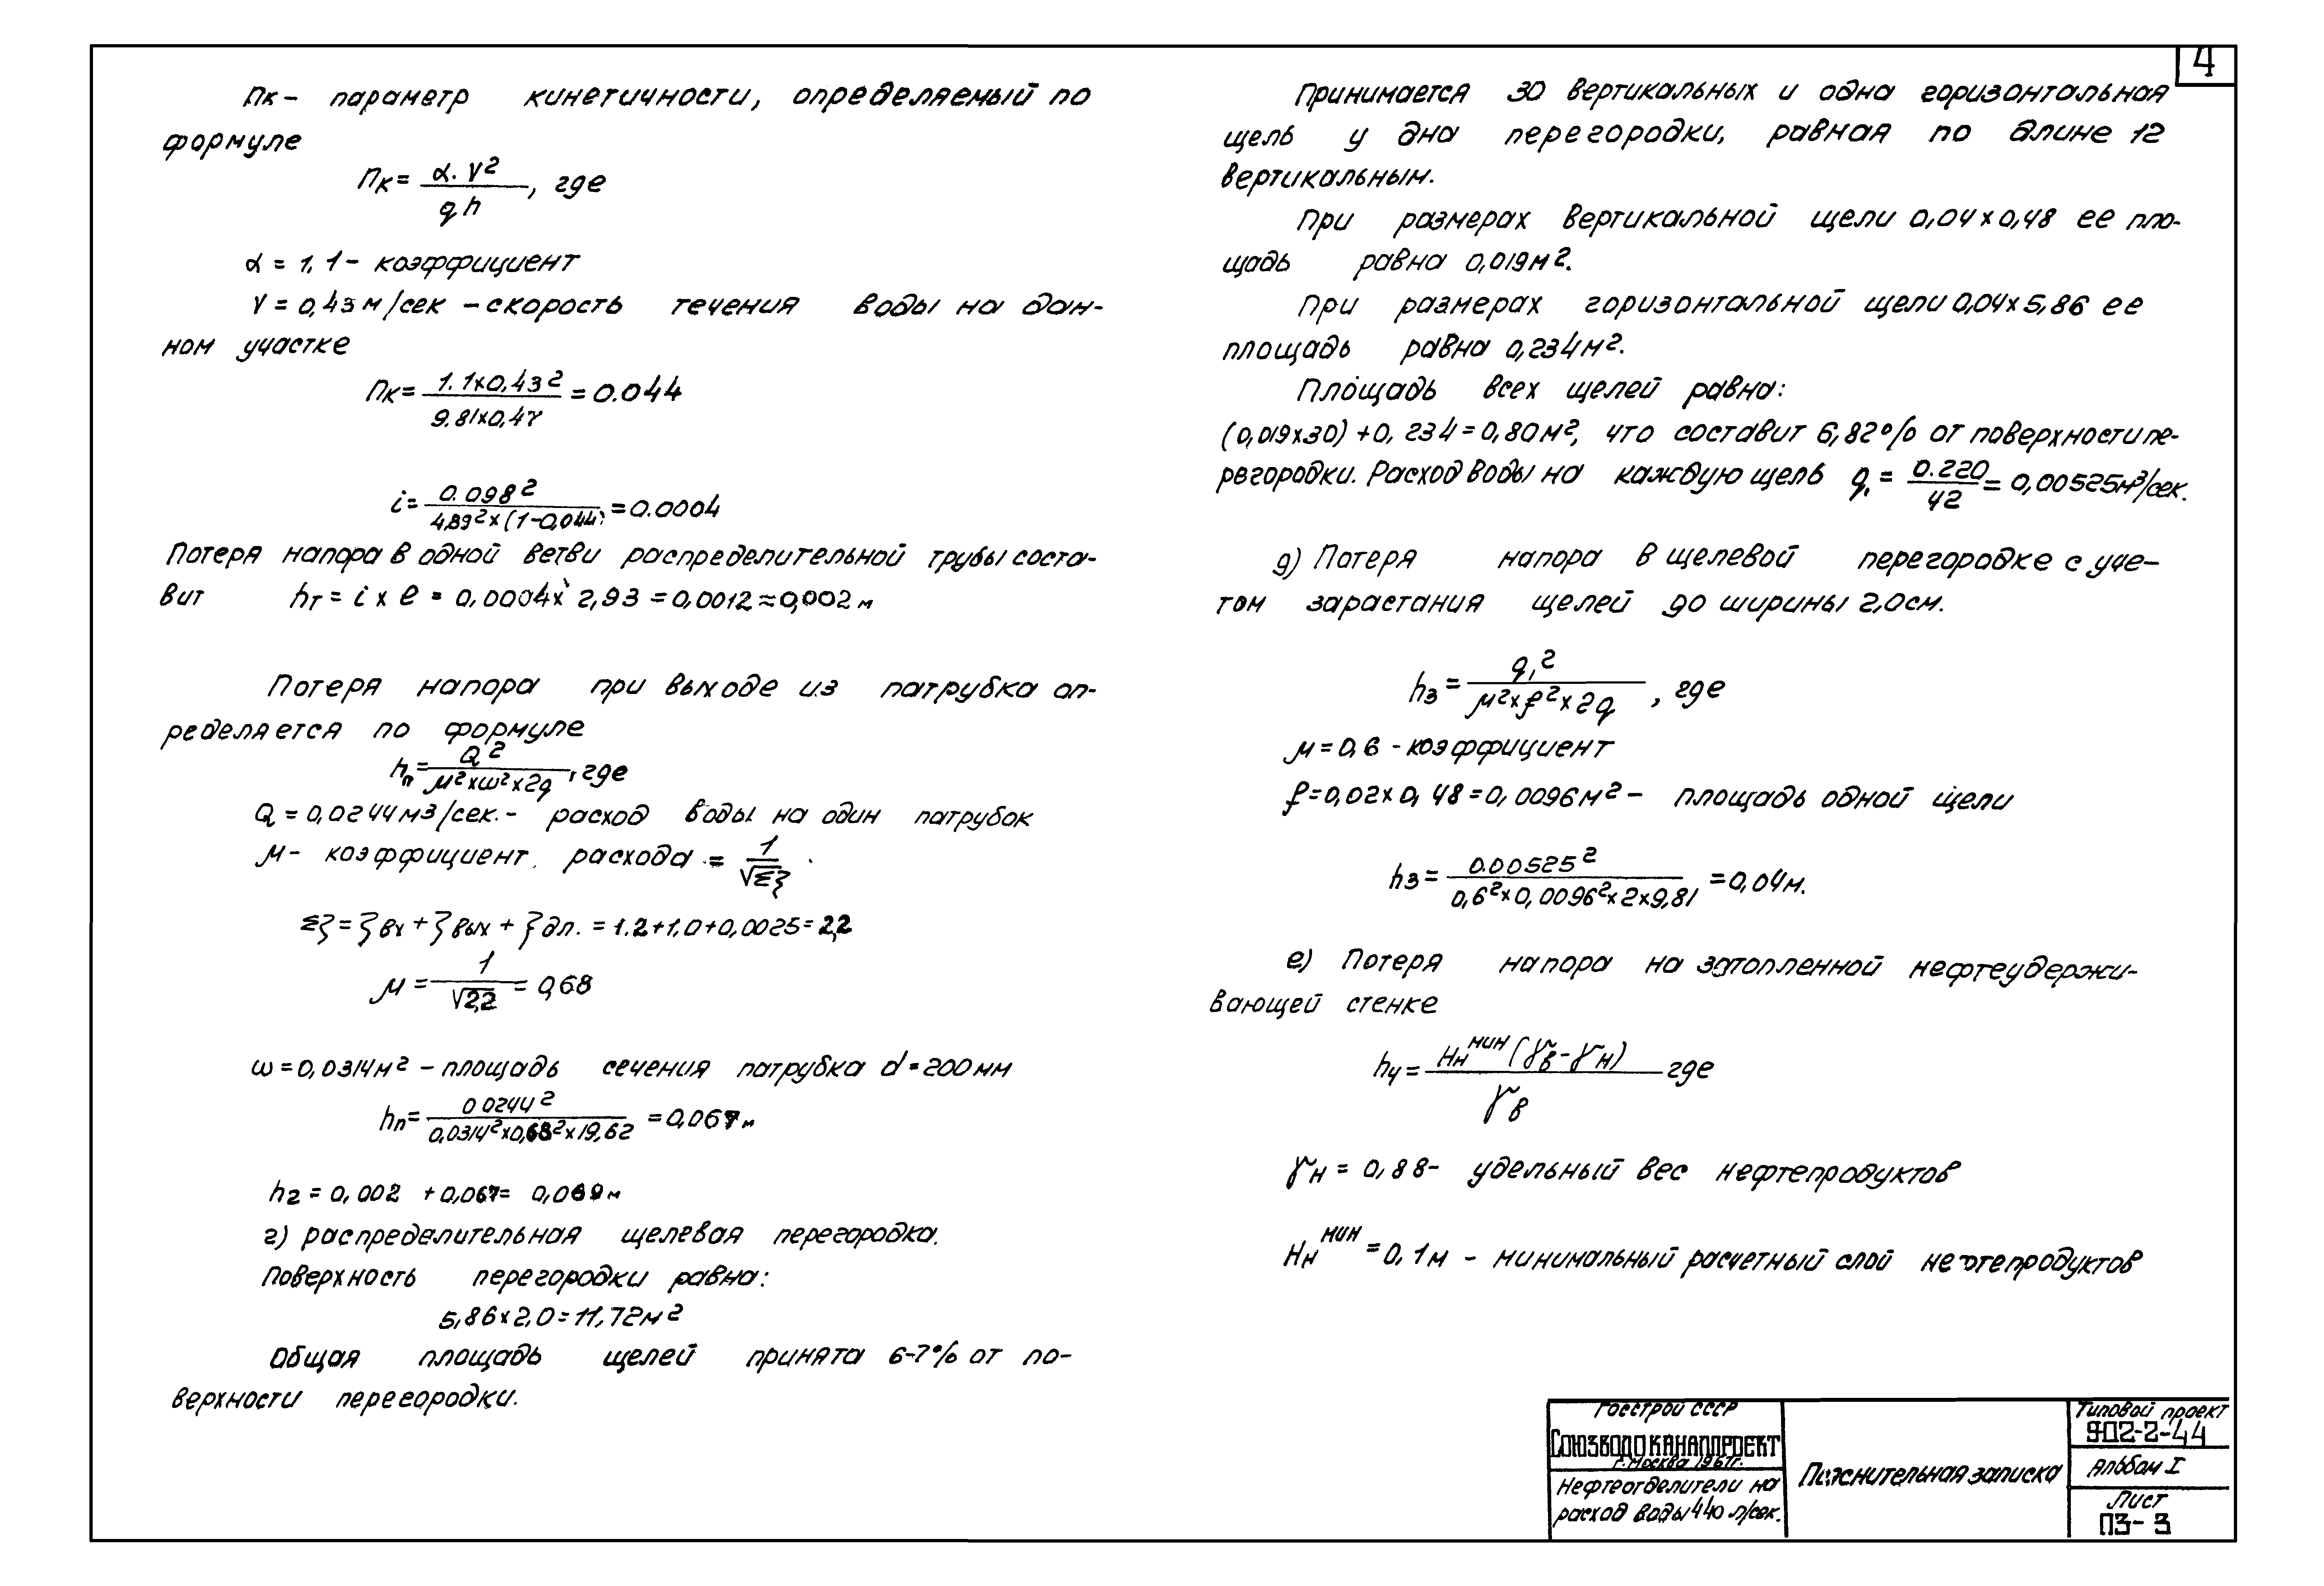 4
Пк – параметр кинетичности, определяемый по
формуле
Пк = α. V² / qh , где
α = 1,1 – коэффициент
V = 0,43 м/сек – скорость течения воды на дан-
ном участке
Пк = 1.1×0,43² / 9.81×0,47 = 0.044
i = 0.098² / 4,89²×(1-0,044) = 0.0004
Потеря напора в одной ветви распределительной трубы соста-
вит hт = i × ℓ = 0,0004× 2,93 = 0,0012 ≈ 0,002 м
Потеря напора при выходе из патрубка оп-
ределяется по формуле
hп = Q² / μ²×ω²×2q , где
Q = 0,0244 м3/сек. – расход воды на один патрубок
μ – коэффициент расхода = 1 / √Σξ
Σξ = ξвх + ξвых + ξдл. = 1.2+1,0+0,0025 = 2,2
μ = 1 / √2,2 = 0,68
ω = 0,0314 м² – площадь сечения патрубка d = 200 мм
hп = 0 0244² / 0,0314²×0,68²×19,62 = 0,067 м
h2 = 0,002 + 0,067 = 0,069 м
г) распределительная щелевая перегородка.
Поверхность перегородки равна:
5,86×2,0 = 11,72 м²
Общая площадь щелей принята 6-7% от по-
верхности перегородки.
Принимается 30 вертикальных и одна горизонтальная
щель у дна перегородки, равная по длине 12
вертикальным.
При размерах вертикальной щели 0,04×0,48 ее пло-
щадь равна 0,019 м².
При размерах горизонтальной щели 0,04×5,86 ее
площадь равна 0,234 м².
Площадь всех щелей равна:
(0,019×30)+0,234 = 0,80 м², что составит 6,82% от поверхности пе-
регородки. Расход воды на каждую щель q₁ = 0.220 / 42 = 0,00525 м³/сек.
д) Потеря напора в щелевой перегородке с уче-
том зарастания щелей до ширины 2,0 см.
h3 = q₁² / μ²×f²×2q , где
μ = 0,6 – коэффициент
f = 0,02×0,48 = 0,0096 м² – площадь одной щели
h3 = 0.00525² / 0,6²×0,0096²×2×9,81 = 0,04 м.
е) Потеря напора на затопленной нефтеудержи-
вающей стенке
h4 = Нн мин (γв - γн) / γв где
γн = 0,88 – удельный вес нефтепродуктов
Нн мин = 0,1 м – минимальный расчетный слой нефтепродуктов
Госстрой СССР
Союзводоканалпроект
г. Москва 1967г.
Нефтеотделители на
расход воды 440 л/сек.
Пояснительная записка
Типовой проект
902-2-44
Альбом I
Лист
ПЗ-3